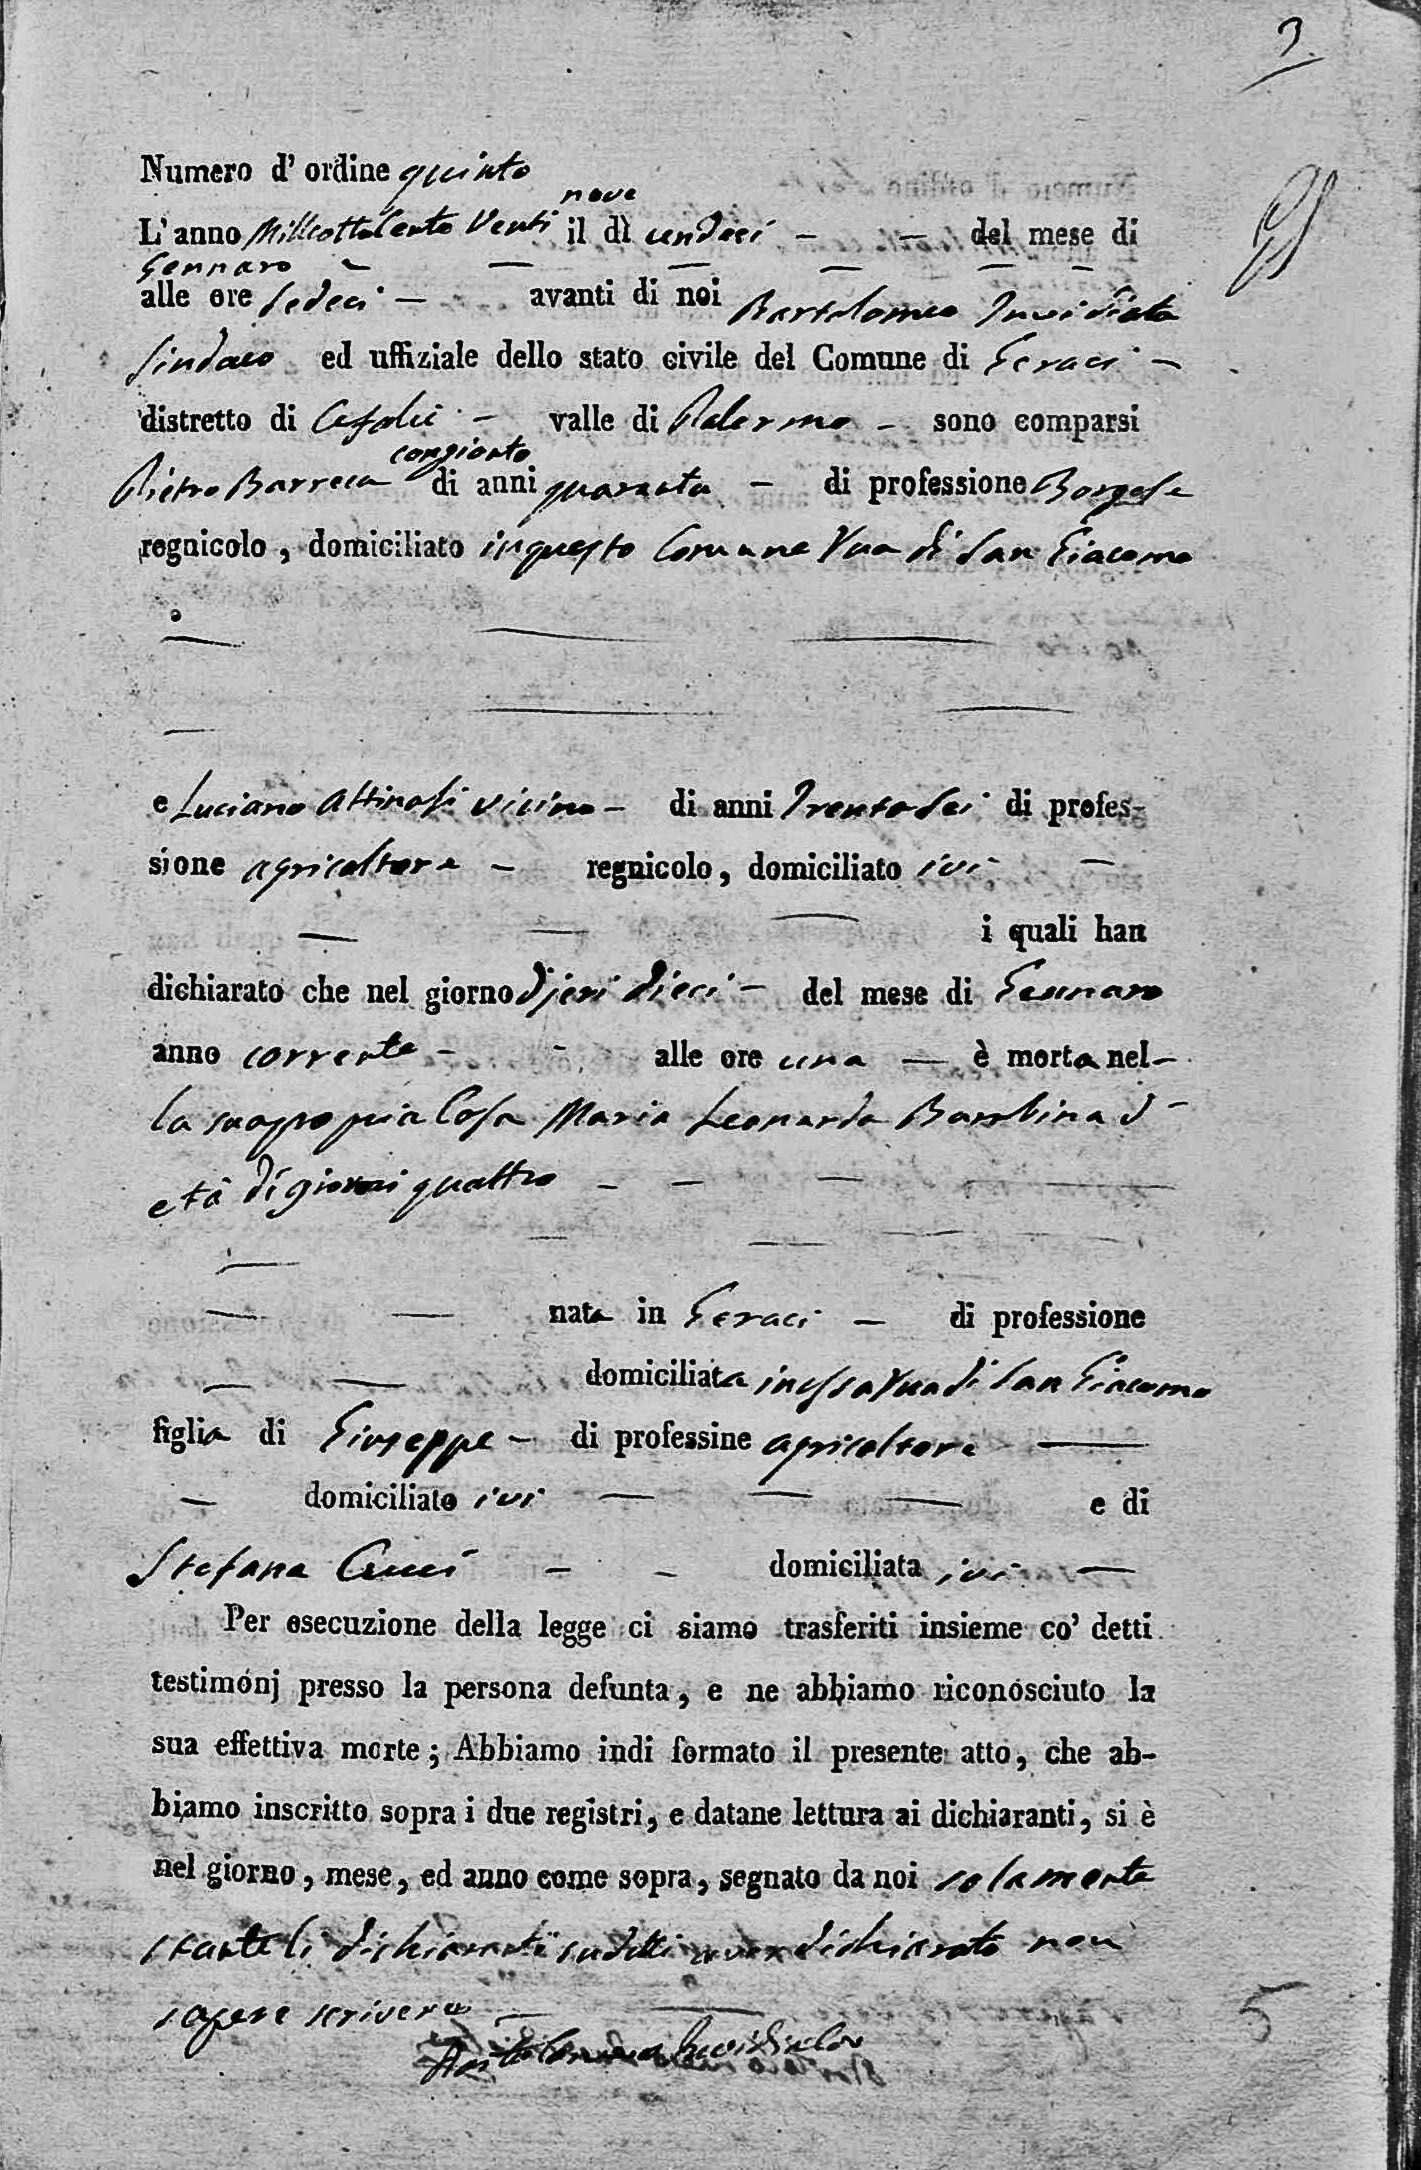 3
Numero d' ordine quinto
nove
L'anno Milleottocento Venti il dì undeci del mese di
Gennaro
alle ore sedeci avanti di noi Bartolomeo Invidiata
Sindaco ed uffiziale dello stato civile del Comune di Geraci
distretto di Cefalù valle di Palermo sono comparsi
congionto
Pietro Barreca di anni quaranta di professione Borgese
regnicolo, domiciliato in questo Comune Vua di San Giacomo
e Luciano Attinasi vicino di anni Trentasei di profes-
sione agricoltore regnicolo, domiciliato ivi
i quali han
dichiarato che nel giorno d'jeri dieci del mese di Gennaro
anno corrente alle ore una è morta nel-
la sua propria Casa Maria Leonarda Bambina d'
età di giorni quattro
nata in Geraci di professione
domiciliata in essa Vua di San Giacomo
figlia di Giuseppe di professine agricoltore
domiciliato ivi e di
Stefana Cucci domiciliata ivi
Per esecuzione della legge ci siamo trasferiti insieme co' detti
testimónj presso la persona defunta, e ne abbiamo riconosciuto la
sua effettiva morte; Abbiamo indi formato il presente atto, che ab-
biamo inscritto sopra i due registri, e datane lettura ai dichiaranti, si è
nel giorno, mese, ed anno come sopra, segnato da noi solamente
stante li dichiaranti sudetti aver dichiarato non
sapere scrivere
Bartolomeo Invidiata
5